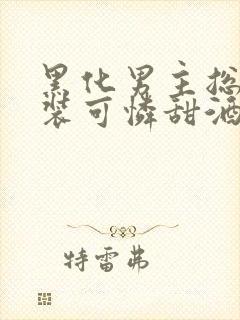 黑化男主总
装可怜甜酒
特雷弗